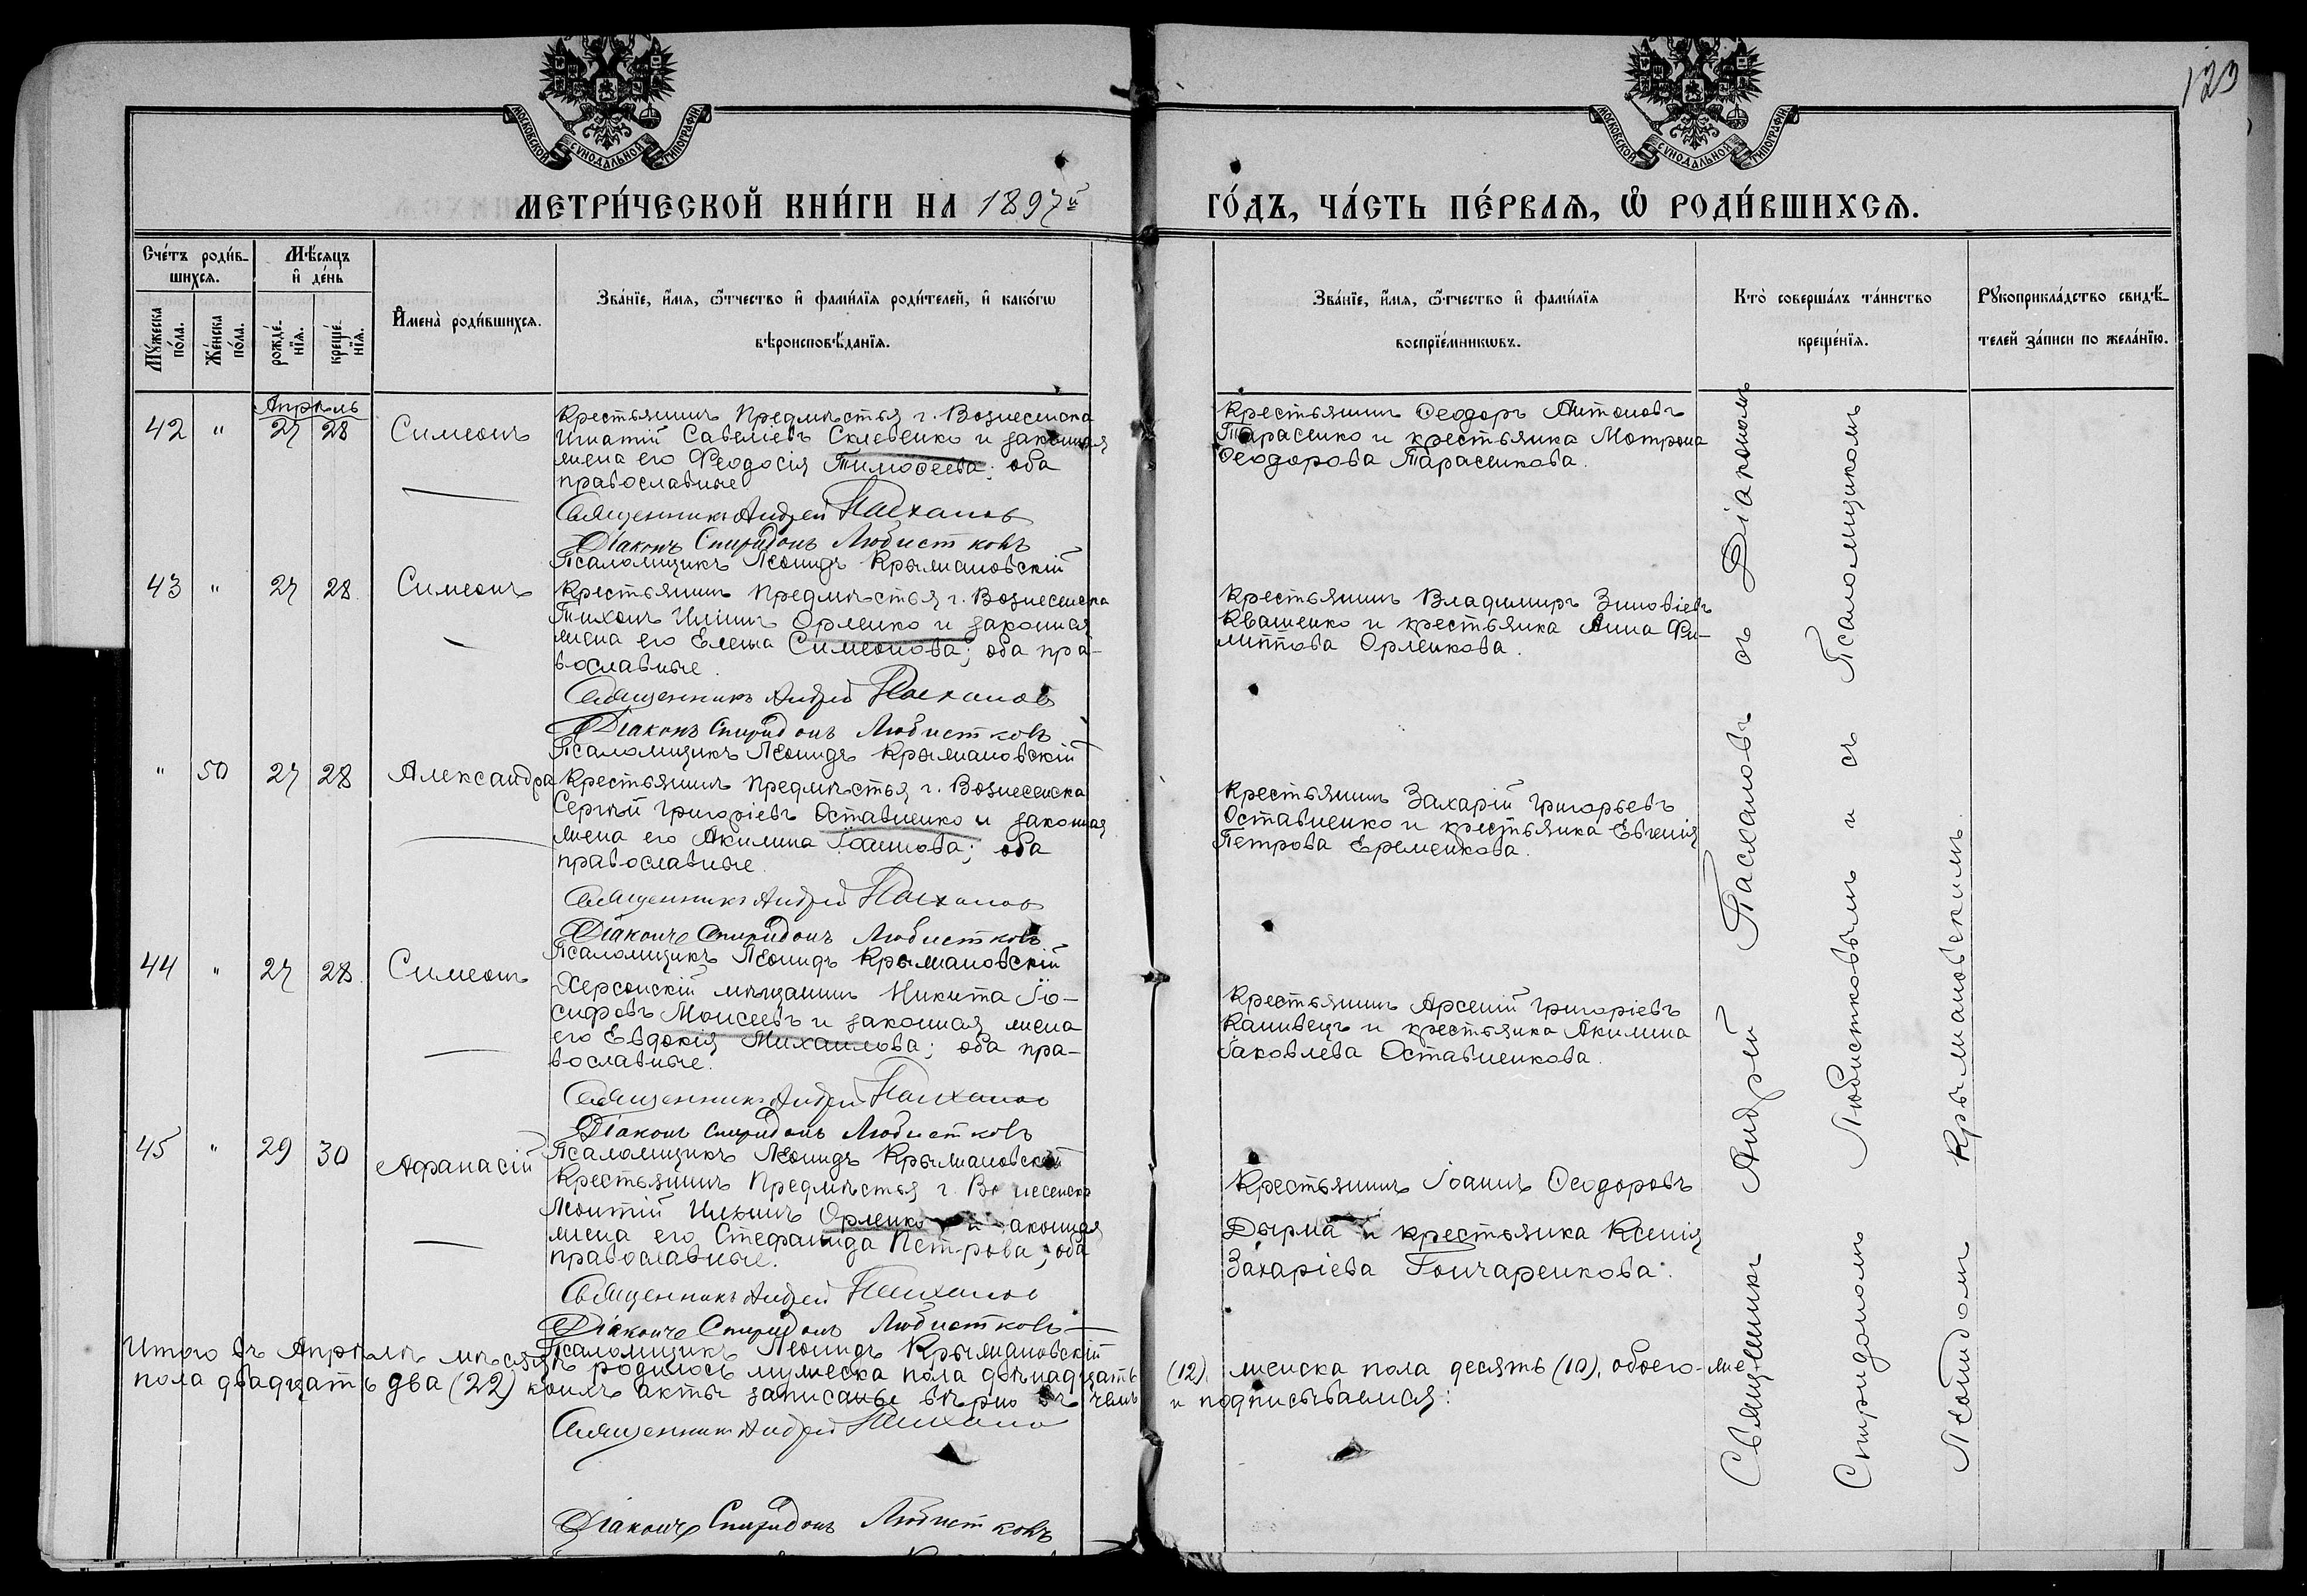 123
МОСКОВСКОЙ СѴНОДАЛЬНОЙ ТИПОГРАФІИ
МОСКОВСКОЙ СѴНОДАЛЬНОЙ ТИПОГРАФІИ
МЕТРИ́ЧЕСКОЙ КНИ́ГИ НА 1897й
ГО́ДЪ, ЧА́СТЬ ПЕ́РВАѦ, Ѡ РОДИ́ВШИХСѦ.
Сче́тъ роди́в-
шихсѧ.
Мѣ́сѧцъ
и҆ де́нь
Мꙋ́жеска
по́ла.
Же́нска
по́ла.
рожде́-
нїѧ.
креще́-
нїѧ.
И҆мена̀ роди́вшихсѧ.
Зва́нїе, и҆́мѧ, ѻ҆́тчество и҆ фами́лїѧ роди́телей, и҆ како́гѡ
вѣроисповѣ́данїѧ.
Зва́нїе, и҆́мѧ, ѻ҆́тчество и҆ фами́лїѧ
воспрїе́мникѡвъ.
Кто̀ соверша́лъ та́инство
креще́нїѧ.
Рꙋкоприкла́дство свидѣ́-
телей за́писи по жела́нїю.
Апрѣль
42 " 27 28 Симеонъ
Крестьянинъ Предмѣстья г. Вознесенска
Игнатій Савеліевъ Склевенко и законная
жена его Феодосія Тимоѳеева; оба
православные
Священникъ Андрей Пасхаловъ
Діаконъ Спиридонъ Любистковъ
Псаломщикъ Леонидъ Крыжановскій
Крестьянинъ Ѳеодоръ Антоновъ
Тарасенко и крестьянка Мотрона
Ѳеодорова Тарасенкова.
43 " 27 28 Симеонъ
Крестьянинъ Предмѣстья г. Вознесенска
Тихонъ Ильинъ Орленко и законная
жена его Елена Симеонова; оба пра-
вославные.
Священникъ Андрей Пасхаловъ
Діаконъ Спиридонъ Любистковъ
Псаломщикъ Леонидъ Крыжановскій
Крестьянинъ Владимиръ Зиновіевъ
Квашенко и крестьянка Анна Фи-
липпова Орленкова.
" 50 27 28 Александра
Крестьянинъ Предмѣстья г. Вознесенска
Сергѣй Григоріевъ Оставненко и законная
жена его Акилина Іоаннова; оба
православные.
Священникъ Андрей Пасхаловъ
Діаконъ Спиридонъ Любистковъ
Псаломщикъ Леонидъ Крыжановскій
Крестьянинъ Захарій Григорьевъ
Оставненко и крестьянка Евгенія
Петрова Еременкова.
44 " 27 28 Симеонъ
Херсонскій мѣщанинъ Никита Іо-
сифовъ Моисеевъ и законная жена
его Евдокія Михаилова; оба пра-
вославные.
Священникъ Андрей Пасхаловъ
Діаконъ Спиридонъ Любистковъ
Псаломщикъ Леонидъ Крыжановскій
Крестьянинъ Арсеній Григоріевъ
Канивецъ и крестьянка Акилина
Іаковлева Оставненкова.
45 " 29 30 Афанасій
Крестьянинъ Предмѣстья г. Вознесенска
Леонтій Ильинъ Орленко и законная
жена его Стефанида Петрова; оба
православные.
Священникъ Андрей Пасхаловъ
Діаконъ Спиридонъ Любистковъ
Псаломщикъ Леонидъ Крыжановскій
Крестьянинъ Іоаннъ Ѳеодоровъ
Дырма и крестьянка Ксенія
Захаріева Гончаренкова.
Священникъ Андрей Пасхаловъ съ Діакономъ
Спиридономъ Любистковымъ и съ Псаломщикомъ
Леонидомъ Крыжановскимъ.
Итого въ Апрѣлѣ мѣсяцѣ родилось мужеска пола двѣнадцать (12), женска пола десять (10), обоего-же
пола двадцать два (22) коихъ акты записаны вѣрно въ чемъ и подписываемся:
Священникъ Андрей Пасхаловъ
Діаконъ Спиридонъ Любистковъ